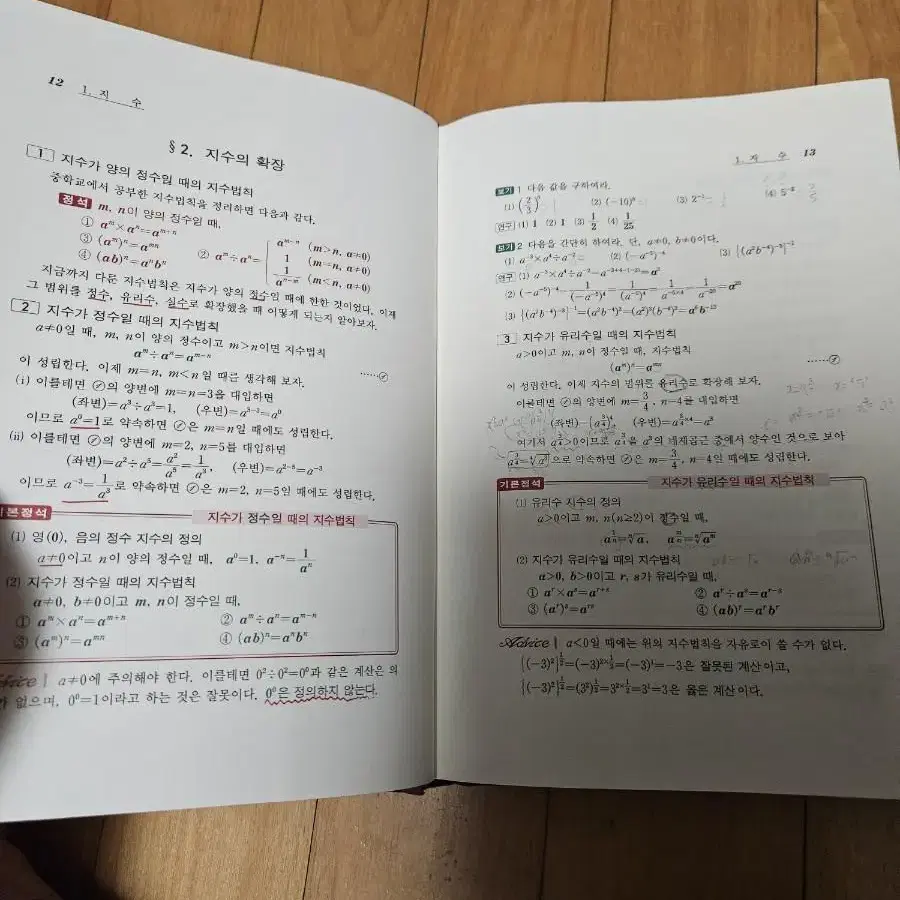 12 1. 지 수
§2. 지수의 확장
1 지수가 양의 정수일 때의 지수법칙
중학교에서 공부한 지수법칙을 정리하면 다음과 같다.
정석 m, n이 양의 정수일 때,
① aᵐ×aⁿ=aᵐ⁺ⁿ
③ (aᵐ)ⁿ=aᵐⁿ
④ (ab)ⁿ=aⁿbⁿ
② aᵐ÷aⁿ=
aᵐ⁻ⁿ (m>n, a≠0)
1 (m=n, a≠0)
1/aⁿ⁻ᵐ (m<n, a≠0)
지금까지 다룬 지수법칙은 지수가 양의 정수인 때에 한한 것이었다. 이제
그 범위를 정수, 유리수, 실수로 확장했을 때 어떻게 되는지 알아보자.
2 지수가 정수일 때의 지수법칙
a≠0일 때, m, n이 양의 정수이고 m>n이면 지수법칙
aᵐ÷aⁿ=aᵐ⁻ⁿ ……②
이 성립한다. 이제 m=n, m<n일 때를 생각해 보자.
(i) 이를테면 ②의 양변에 m=n=3을 대입하면
(좌변)=a³÷a³=1, (우변)=a³⁻³=a⁰
이므로 a⁰=1로 약속하면 ②은 m=n일 때에도 성립한다.
(ii) 이를테면 ②의 양변에 m=2, n=5를 대입하면
(좌변)=a²÷a⁵=a²/a⁵=1/a³, (우변)=a²⁻⁵=a⁻³
이므로 a⁻³=1/a³로 약속하면 ②은 m=2, n=5일 때에도 성립한다.
기본정석 지수가 정수일 때의 지수법칙
(1) 영(0), 음의 정수 지수의 정의
a≠0이고 n이 양의 정수일 때, a⁰=1, a⁻ⁿ=1/aⁿ
(2) 지수가 정수일 때의 지수법칙
a≠0, b≠0이고 m, n이 정수일 때,
① aᵐ×aⁿ=aᵐ⁺ⁿ ② aᵐ÷aⁿ=aᵐ⁻ⁿ
③ (aᵐ)ⁿ=aᵐⁿ ④ (ab)ⁿ=aⁿbⁿ
a≠0에 주의해야 한다. 이를테면 0²÷0²=0⁰과 같은 계산은 의
가 없으며, 0⁰=1이라고 하는 것은 잘못이다. 0⁰은 정의하지 않는다.
1. 지 수 13
보기 1 다음 값을 구하여라.
(1) (2/3)⁰ (2) (-10)⁰ (3) 2⁻¹ (4) 5⁻²
연구 (1) 1 (2) 1 (3) 1/2 (4) 1/25
보기 2 다음을 간단히 하여라. 단, a≠0, b≠0이다.
(1) a⁻³×a⁴÷a⁻² (2) (-a⁻⁵)⁻⁴ (3) {(a²b⁻⁴)⁻³}⁻¹
연구 (1) a⁻³×a⁴÷a⁻²=a⁻³⁺⁴⁻⁽⁻²⁾=a³
3 지수가 유리수일 때의 지수법칙
a>0이고 m, n이 정수일 때, 지수법칙
(aᵐ)ⁿ=aᵐⁿ ……②
이 성립한다. 이제 지수의 범위를 유리수로 확장해 보자.
이를테면 ②의 양변에 m=3/4, n=4를 대입하면
(좌변)=(a^(3/4))⁴, (우변)=a^(3/4×4)=a³
여기서 a^(3/4)>0이므로 a^(3/4)을 a³의 네제곱근 중에서 양수인 것으로 보아
a^(3/4)=⁴√a³으로 약속하면 ②은 m=3/4, n=4일 때에도 성립한다.
기본정석 지수가 유리수일 때의 지수법칙
(1) 유리수 지수의 정의
a>0이고 m, n(n≥2)이 정수일 때,
a^(1/n)=ⁿ√a, a^(m/n)=ⁿ√aᵐ
(2) 지수가 유리수일 때의 지수법칙
a>0, b>0이고 r, s가 유리수일 때,
① aʳ×aˢ=aʳ⁺ˢ ② aʳ÷aˢ=aʳ⁻ˢ
③ (aʳ)ˢ=aʳˢ ④ (ab)ʳ=aʳbʳ
Advice a<0일 때에는 위의 지수법칙을 자유로이 쓸 수가 없다.
{(-3)²}^(1/2)=(-3)^(2×1/2)=(-3)¹=-3은 잘못된 계산이고,
{(-3)²}^(1/2)=(3²)^(1/2)=3^(2×1/2)=3¹=3은 옳은 계산이다.